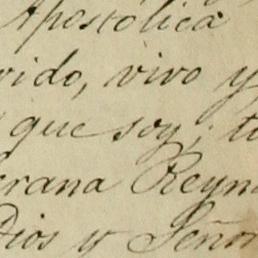 Apostólica
vido, vivo y
que soy; t
erana Reyn
Dios y Señor